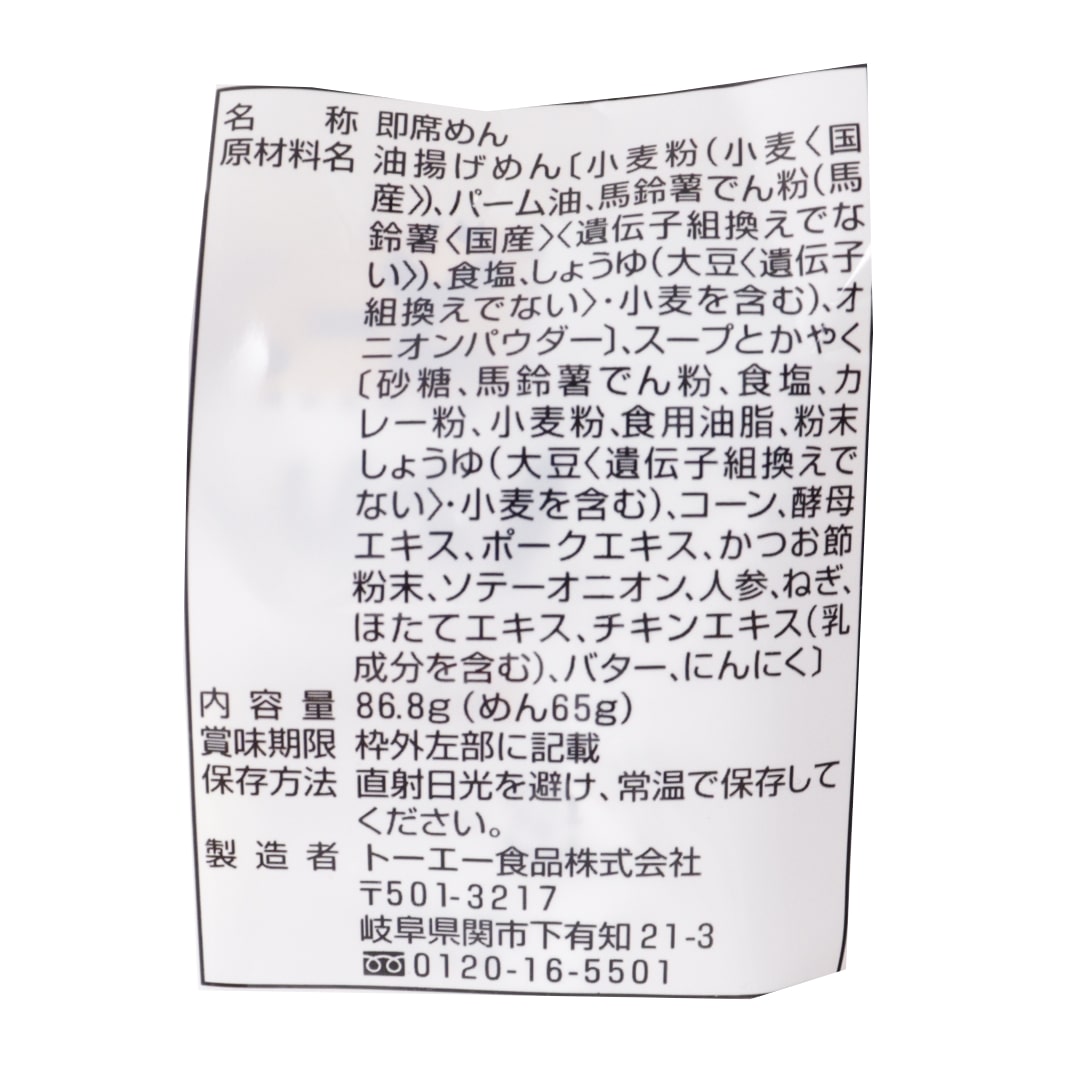 名称 即席めん
原材料名 油揚げめん〔小麦粉(小麦〈国
産〉)、パーム油、馬鈴薯でん粉(馬
鈴薯〈国産〉〈遺伝子組換えでな
い〉)、食塩、しょうゆ(大豆〈遺伝子
組換えでない〉・小麦を含む)、オ
ニオンパウダー〕、スープとかやく
〔砂糖、馬鈴薯でん粉、食塩、カ
レー粉、小麦粉、食用油脂、粉末
しょうゆ(大豆〈遺伝子組換えで
ない〉・小麦を含む)、コーン、酵母
エキス、ポークエキス、かつお節
粉末、ソテーオニオン、人参、ねぎ、
ほたてエキス、チキンエキス(乳
成分を含む)、バター、にんにく〕
内容量 86.8g(めん65g)
賞味期限 枠外左部に記載
保存方法 直射日光を避け、常温で保存して
ください。
製造者 トーエー食品株式会社
〒501-3217
岐阜県関市下有知21-3
0120-16-5501